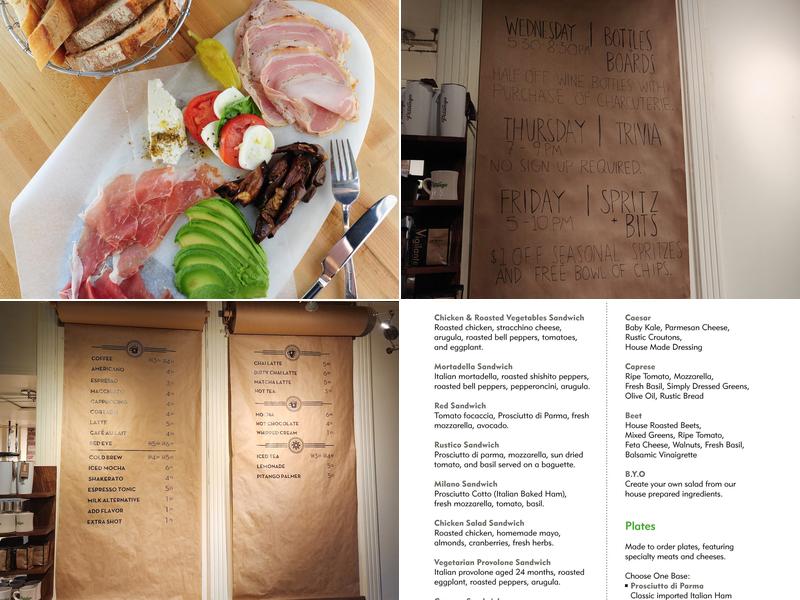 WEDNESDAY | BOTTLES
5:30-8:30PM
BOARDS
HALF OFF WINE BOTTLES WITH
PURCHASE OF CHARCUTERIE.
THURSDAY | TRIVIA
7 - 9 PM
NO SIGN-UP REQUIRED.
FRIDAY | SPRITZ
5 - 10 PM
+ BITS
$1 OFF SEASONAL SPRITZES
AND FREE BOWL OF CHIPS.
Vigilante
COFFEE
AMERICANO
ESPRESSO
MACCHIATO
CAPPUCCINO
CORTADO
LATTE
CAFÉ AU LAIT
RED EYE
COLD BREW
ICED MOCHA
SHAKERATO
ESPRESSO TONIC
MILK ALTERNATIVE
ADD FLAVOR
EXTRA SHOT
CHAI LATTE
DIRTY CHAI LATTE
MATCHA LATTE
HOT TEA
MOCHA
HOT CHOCOLATE
WHIPPED CREAM
ICED TEA
LEMONADE
PITANGO PALMER
Chicken & Roasted Vegetables Sandwich
Roasted chicken, stracchino cheese,
arugula, roasted bell peppers, tomatoes,
and eggplant.
Mortadella Sandwich
Italian mortadella, roasted shishito peppers,
roasted bell peppers, pepperoncini, arugula.
Red Sandwich
Tomato focaccia, Prosciutto di Parma, fresh
mozzarella, avocado.
Rustico Sandwich
Prosciutto di parma, mozzarella, sun dried
tomato, and basil served on a baguette.
Milano Sandwich
Prosciutto Cotto (Italian Baked Ham),
fresh mozzarella, tomato, basil.
Chicken Salad Sandwich
Roasted chicken, homemade mayo,
almonds, cranberries, fresh herbs.
Vegetarian Provolone Sandwich
Italian provolone aged 24 months, roasted
eggplant, roasted peppers, arugula.
Caesar
Baby Kale, Parmesan Cheese,
Rustic Croutons,
House Made Dressing
Caprese
Ripe Tomato, Mozzarella,
Fresh Basil, Simply Dressed Greens,
Olive Oil, Rustic Bread
Beet
House Roasted Beets,
Mixed Greens, Ripe Tomato,
Feta Cheese, Walnuts, Fresh Basil,
Balsamic Vinaigrette
B.Y.O
Create your own salad from our
house prepared ingredients.
Plates
Made to order plates, featuring
specialty meats and cheeses.
Choose One Base:
▪ Prosciutto di Parma
Classic imported Italian Ham